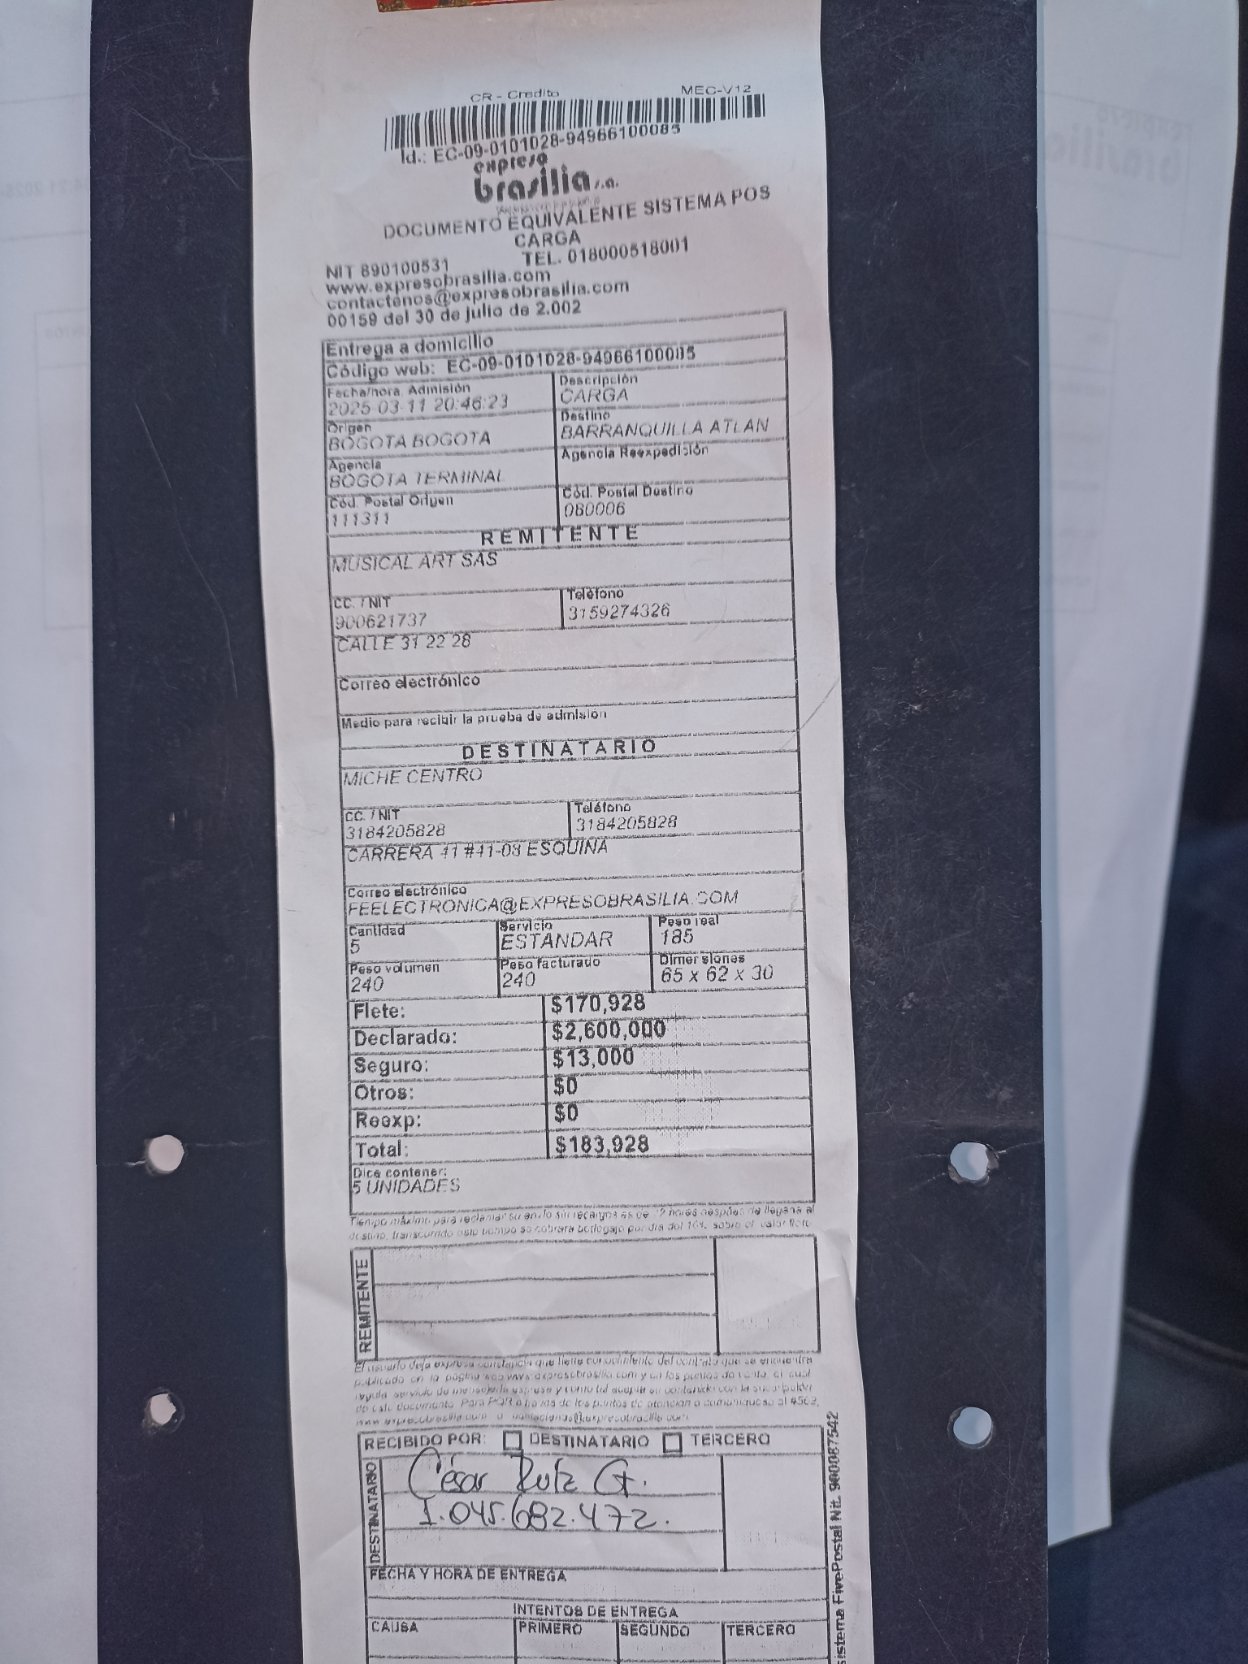 CR - Credito MEC-V12
Id.: EC-09-0101028-94966100085
expreso
brasilia s.a.
DOCUMENTO EQUIVALENTE SISTEMA POS
CARGA
NIT 890100531 TEL. 018000518001
www.expresobrasilia.com
contactenos@expresobrasilia.com
00159 del 30 de julio de 2.002
Entrega a domicilio
Código web: EC-09-0101028-94966100085
Fecha/hora. Admisión Descripción
2025-03-11 20:46:23 CARGA
Origen Destino
BOGOTA BOGOTA BARRANQUILLA ATLAN
Agencia Agencia Reexpedición
BOGOTA TERMINAL
Cód. Postal Origen Cód. Postal Destino
111311 080006
REMITENTE
MUSICAL ART SAS
CC. / NIT Teléfono
900621737 3159274326
CALLE 31 22 28
Correo electrónico
Medio para recibir la prueba de admisión
DESTINATARIO
MICHE CENTRO
CC. / NIT Teléfono
3184205828 3184205828
CARRERA 41 #41-08 ESQUINA
Correo electrónico
FEELECTRONICA@EXPRESOBRASILIA.COM
Cantidad Servicio Peso real
5 ESTANDAR 185
Peso volumen Peso facturado Dimensiones
240 240 65 x 62 x 30
Flete: $170,928
Declarado: $2,600,000
Seguro: $13,000
Otros: $0
Reexp: $0
Total: $183,928
Dice contener:
5 UNIDADES
Tiempo máximo para reclamar su envío sin recargos es de horas después de llegada al
destino, transcurrido este tiempo se cobrará bodegaje por día del 10% sobre el valor flete
REMITENTE
El usuario deja expresa constancia que tiene conocimiento del contrato que se encuentra
publicado en la página web www.expresobrasilia.com y en los puntos de venta, el cual
regula servicio de mensajería expresa y
de este documento. Para PQR
www.expresobrasilia.com o contactenos@expresobrasilia.com
RECIBIDO POR: DESTINATARIO TERCERO
DESTINATARIO
César Ruiz G.
1.045.682.472.
FECHA Y HORA DE ENTREGA
INTENTOS DE ENTREGA
CAUSA PRIMERO SEGUNDO TERCERO
istema FivePostal Nit. 900087542